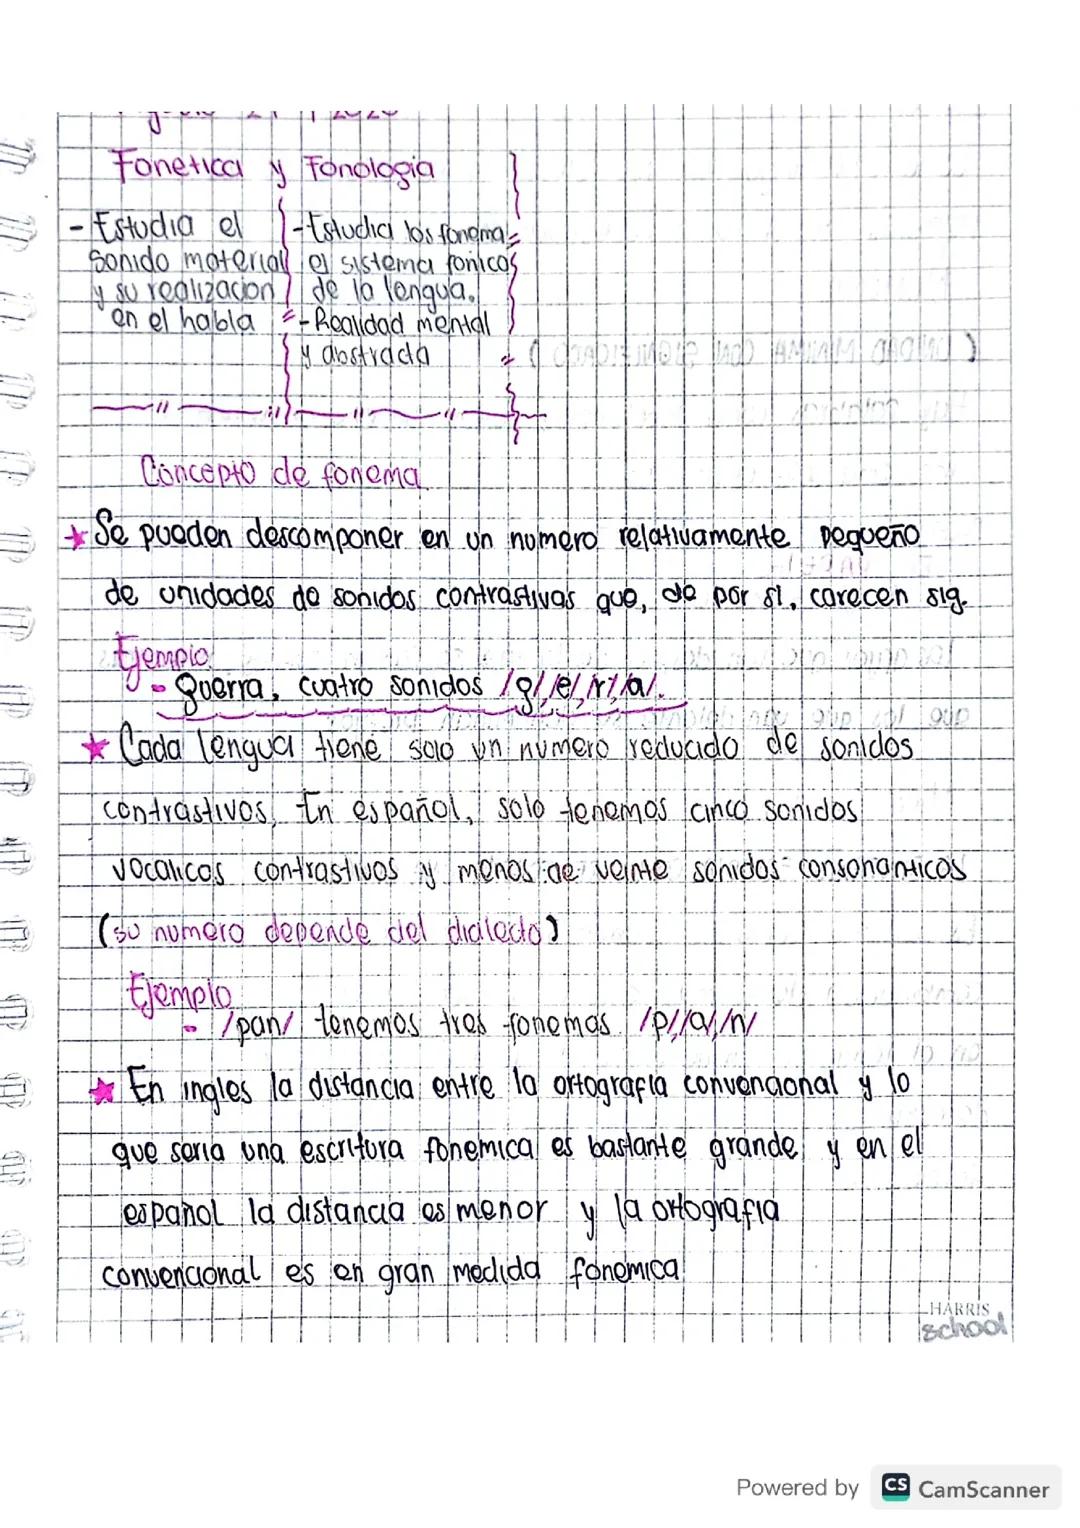 Fonetica y Fonologia
- Estudia el
sonido material
y su realizacion
en el habla
- Estudia los fonemas
el sistema fonicos
de la lengua.
- Realidad mental
y abstracta
Concepto de fonema
Se pueden descomponer en un numero relativamente pequeño
de unidades de sonidos contrastivas que, de por si, carecen sig.
Ejemplo
- Guerra, cuatro sonidos /g/,/e/,/r/,/a/.
Cada lengua tiene solo un numero reducido de sonidos
contrastivos. En español, solo tenemos cinco sonidos
vocalicos contrastivos y menos de veinte sonidos consonanticos
(su numero depende del dialecto)
Ejemplo
- /pan/ tenemos tres fonemas /p/,/a/,/n/
En ingles la distancia entre la ortografia convencional y lo
que seria una escritura fonemica es bastante grande y en el
español la distancia es menor y la ortografia
convencional es en gran medida fonemica
HARRIS
school
Powered by CS CamScanner